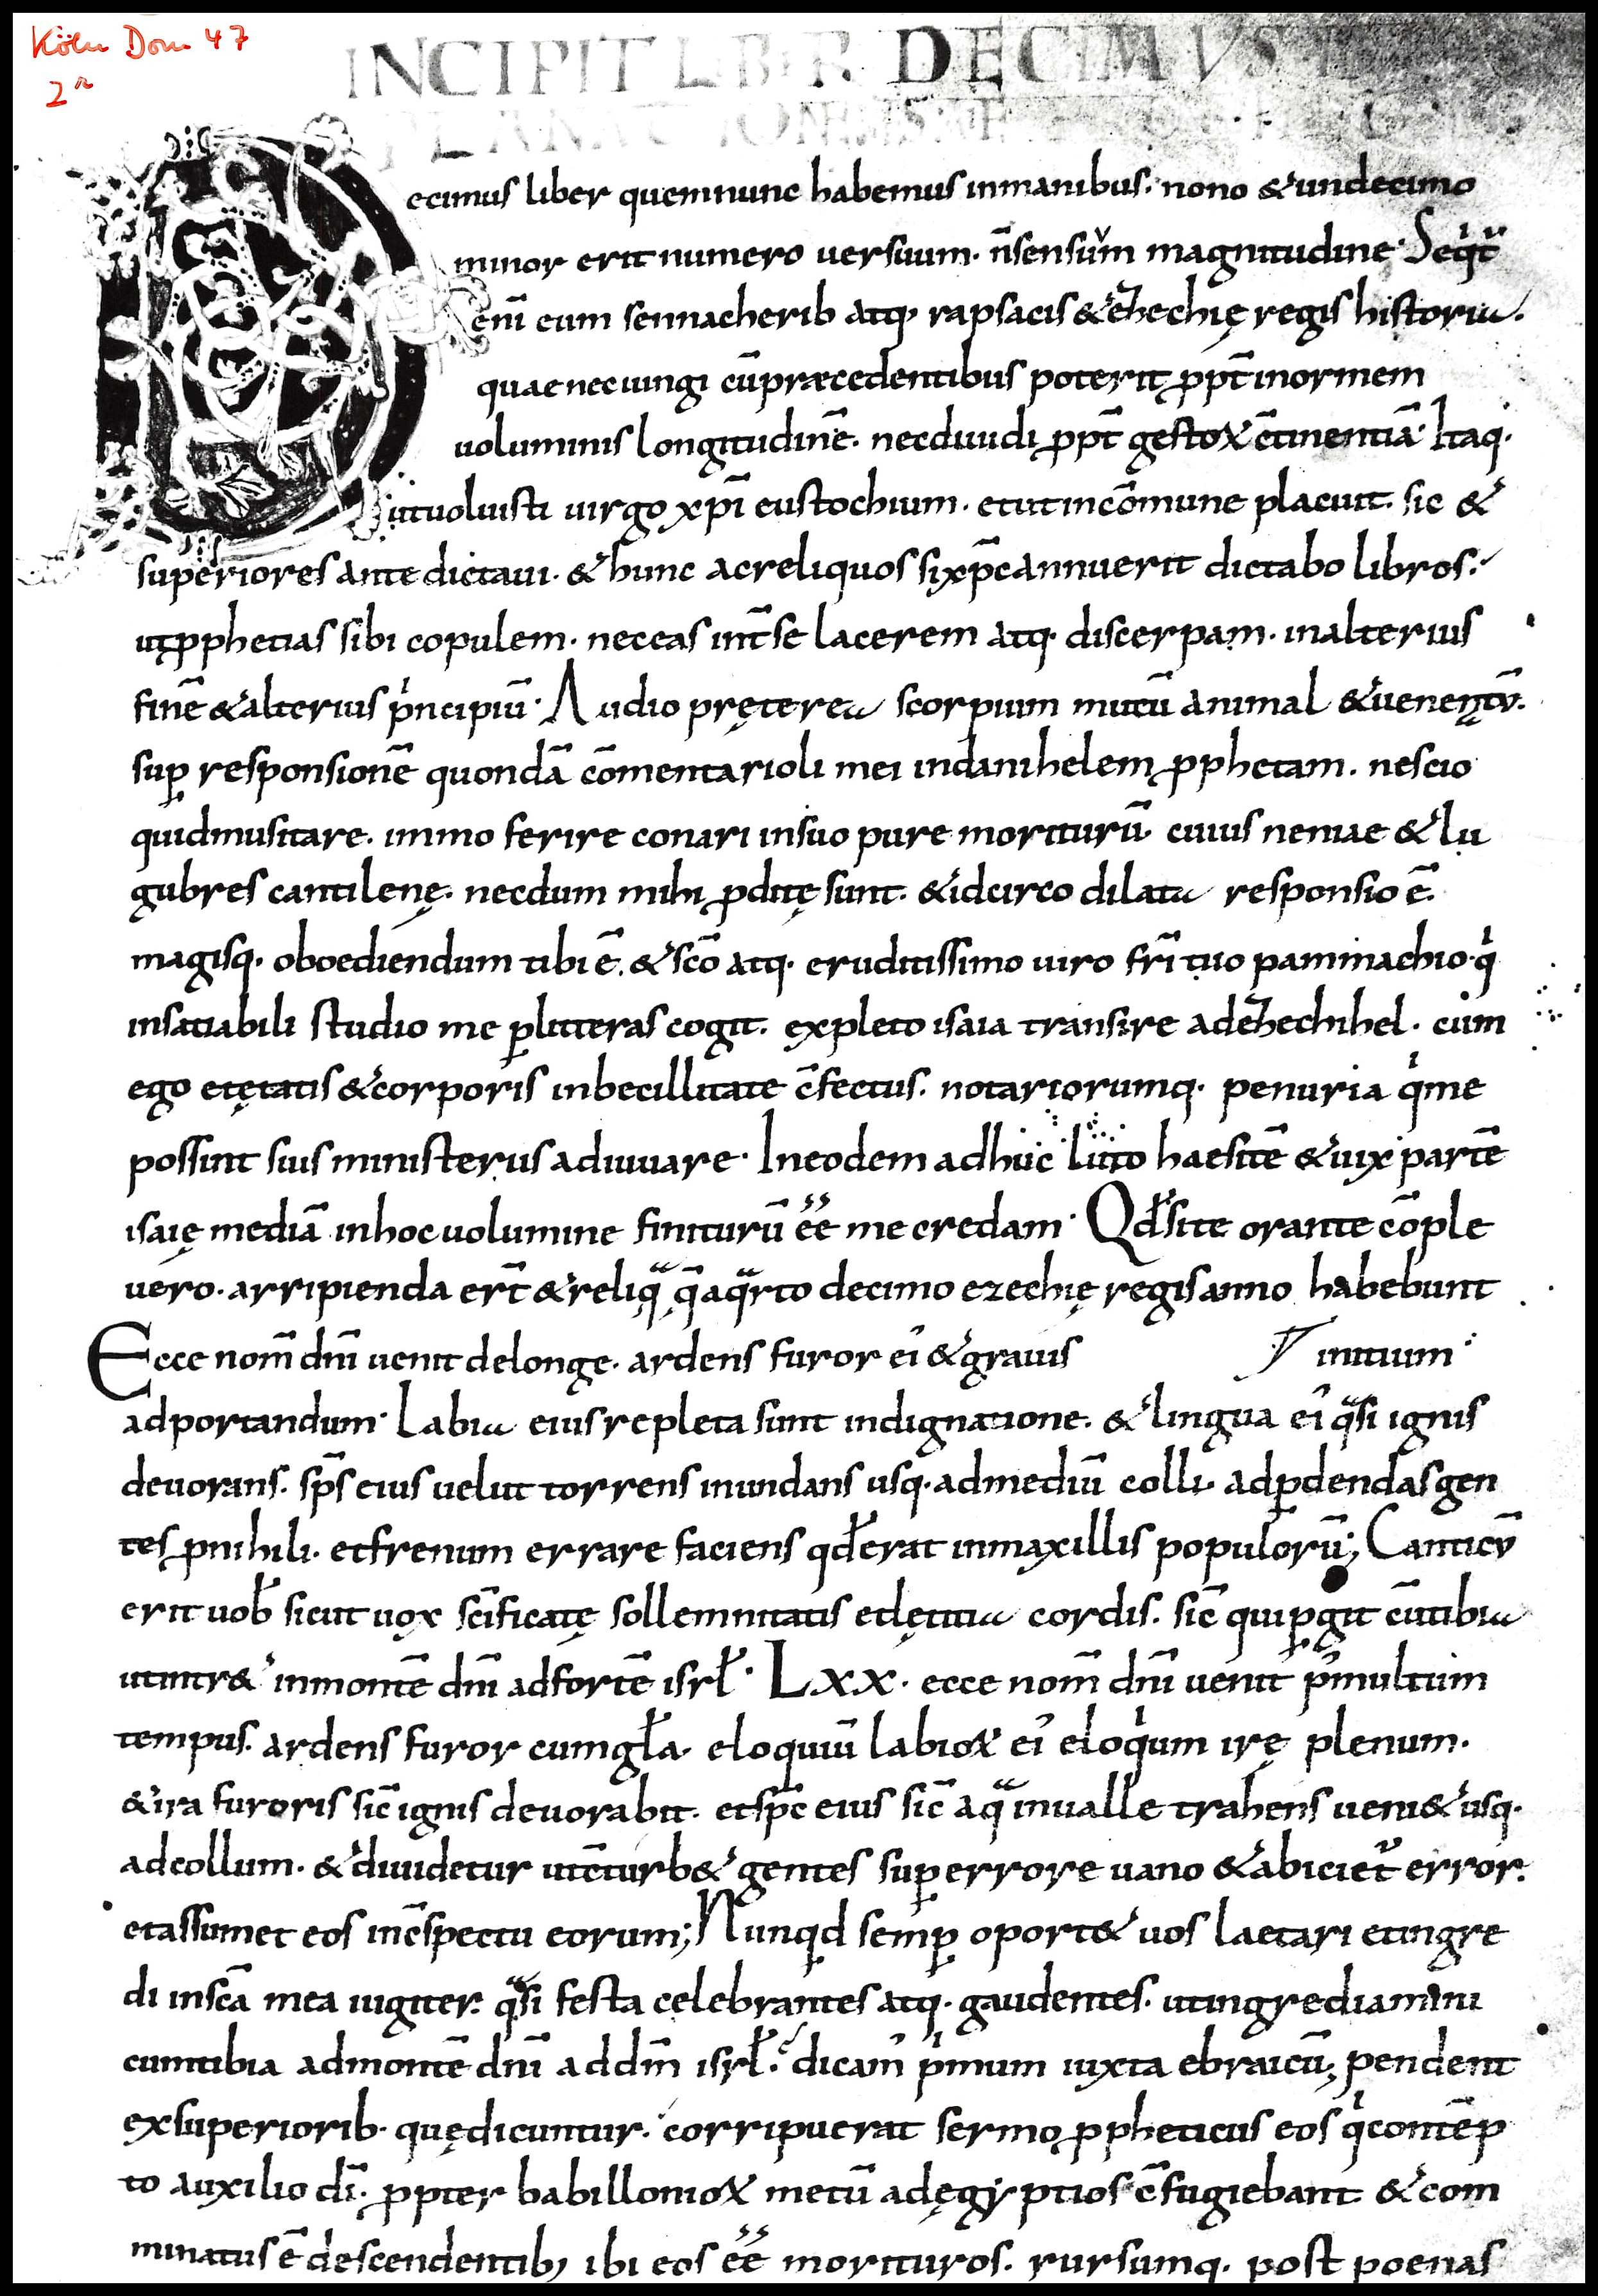 Köln Dom 47
2ʳ
INCIPIT LIBER DECIMUS
PLANATIONIS
ecimus liber quemnunc habemus inmanibus· nono & undecimo
minor erit numero uersuum· n̄sensuum magnitudine· Seqͥt᷑
eni᷑ eum sennacherib atq· rapsacis & ezechię regis historia·
quae nec iungi cū præcedentibus poterit ꝓpt̄ inormem
uoluminis longitudinē· nec diuidi ꝓpt̄ gestoꝝ c̄tinentiā· Itaq·
ut uoluisti uirgo xp̄i eustochium· et ut incōmune placuit· sic &
superiores ante dictaui· & hunc ac reliquos si xp̄c annuerit dictabo libros·
ut ꝓphetias sibi copulem· nec eas int̄ se lacerem atq· discerpam· in alterius
finē & alterius pͥncipiū· Audio prętereа scorpium mutū animal & uenentū·
suꝑ responsionē quondā cōmentarioli mei in danihelem ꝓphetam· nescio
quid musitare· immo ferire conari in suo pure moriturū· cuius neniae & lu
gubres cantilenę· necdum mihi ꝓditę sunt· & idcirco dilata responsio ē·
magisq· oboediendum tibi ē· & sc̄o atq· eruditissimo uiro fr̄i tuo pammachio· qͥ
insatiabili studio me ꝑ litteras cogit· expleto isaia transire ad ezechihel· cum
ego et ętatis & corporis inbecillitate c̄fectus· notariorumq· penuria qͥ me
possint suis ministeriis adiuuare· In eodem adhuc luto haesitē & uix partē
isaię mediā in hoc uolumine finiturū ēē me credam· Qđ si te orante cōple
uero· arripienda er̄t & reliqͣ q̄ a qͣrto decimo ezechię regis anno habebunt
Ecce nom̄ dn̄i uenit de longe· ardens furor ei᷒ & grauis initium·
ad portandum· Labia eius repleta sunt indignatione· & lingua ei᷒ qͣsi ignis
deuorans· sp̄s eius uelut torrens inundans usq· ad mediū colli· ad ꝑdendas gen
tes ꝓ nihili· et frenum errare faciens qđ erat in maxillis populorū; Canticū
erit uob̄ sicut uox sc̄ificatę sollemnitatis et lętitia cordis· sic̄ qui ꝑgit cū tibia
ut intr& in montē dn̄i ad fortē isrł· Lxx· ecce nom̄ dn̄i uenit p᷒ multum
tempus· ardens furor cum gła· eloquiū labioꝝ ei᷒ eloqͥum irę plenum·
& ira furoris sic̄ ignis deuorabit· et sp̄c eius sic̄ aqͣ in ualle trahens ueni& usq·
ad collum· & diuidetur ut c̄turb& gentes suꝑ errore uano & abiciet᷑ error·
et assumet eos in c̄spectu eorum; Nunqͥd semꝑ oport& uos laetari et ingre
di in sc̄a mea iugiter· qͣsi festa celebrantes atq· gaudentes· ut ingrediamini
cum tibia ad montē dn̄i ad dm̄ isrł· dicam᷒ pͥmum iuxta ebraicū; pendent
ex superiorib· quę dicuntur· corripuerat sermo ꝓpheticus eos qͥ contēp
to auxilio dī· ꝓpter babillonioꝝ metū ad ęgyptios c̄fugiebant & com
minatus ē descendentib; ibi eos ēē morituros· rursumq· post poenas